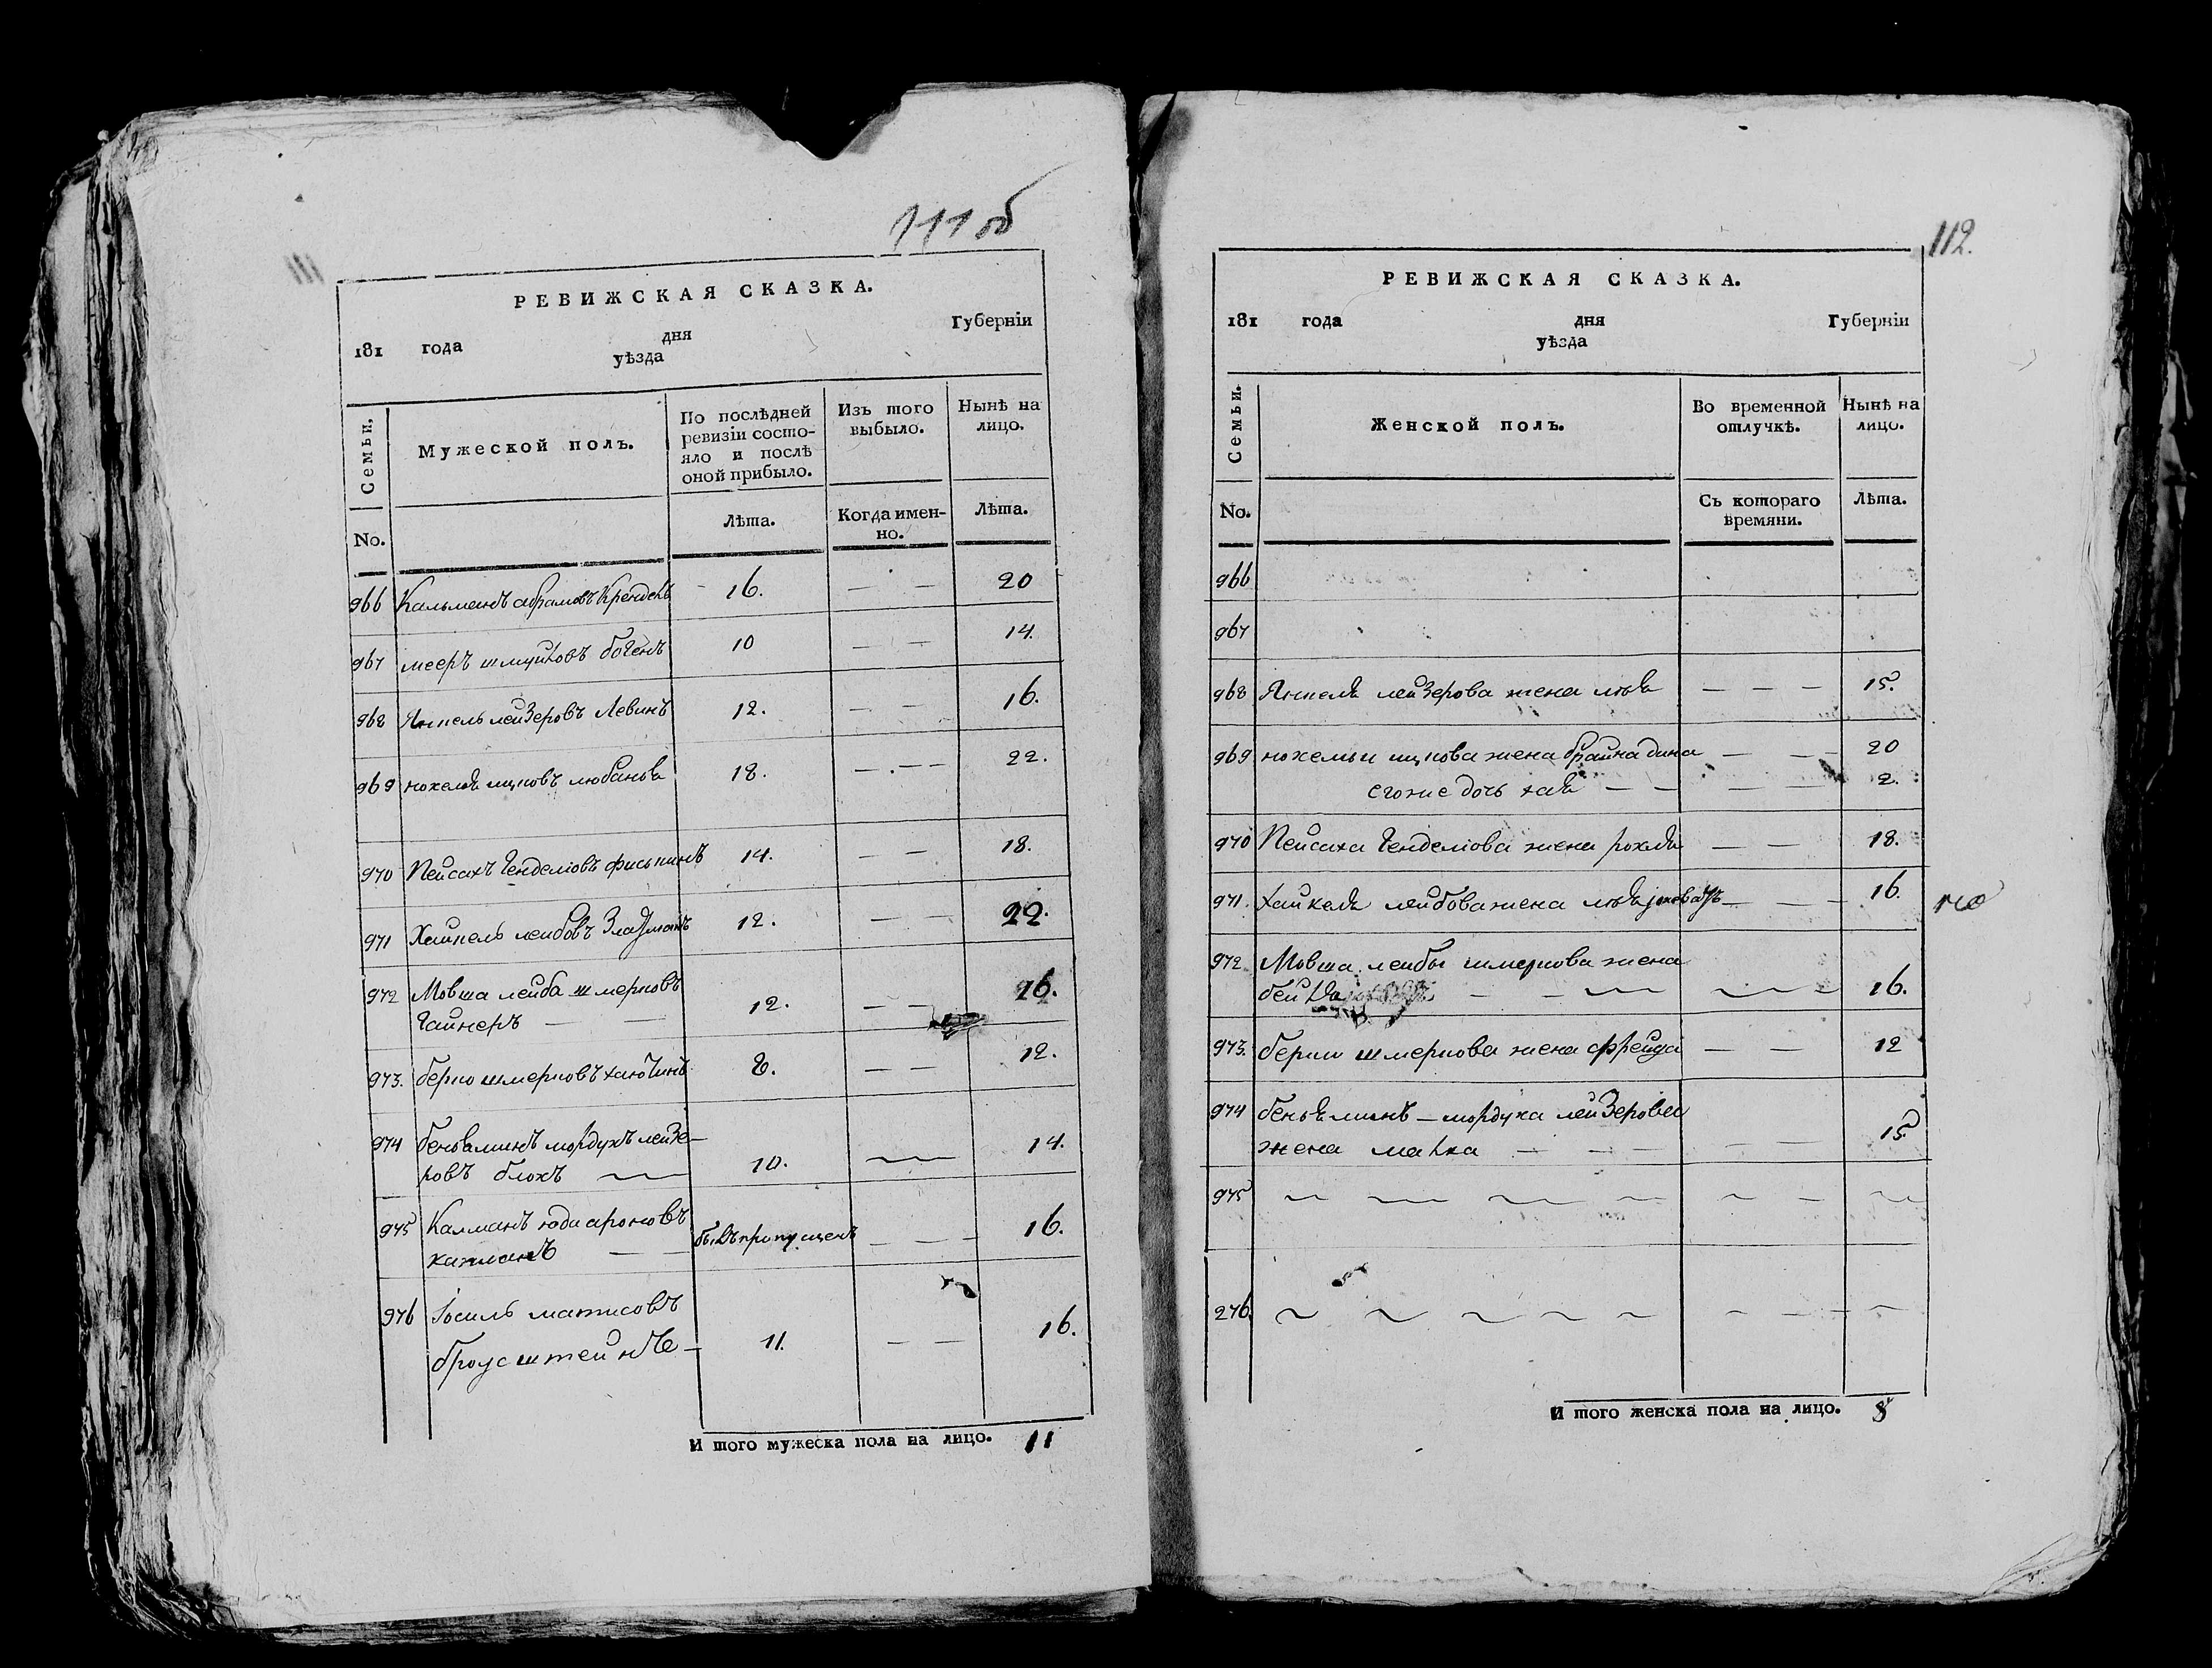 111 об
РЕВИЖСКАЯ СКАЗКА.
181 года дня Губерніи
уѣзда
Семьи.
Мужеской полъ.
По послѣдней ревизіи состо-
яло и послѣ
оной прибыло.
Изъ того
выбыло.
Нынѣ на
лицо.
No.
Лѣта.
Когда имен-
но.
Лѣта.
966 Кальманъ абрамовъ 16. — — 20
967 мееръ 10 — — 14.
968 Янкель лейзеровъ Левинъ 12. — — 16.
969 ицковъ 18. — — 22.
970 Пейсахъ 14. — — 18.
971 Хайкель лейбовъ 12. — — 22.
972 Мовша лейба шмерковъ
12. — — 16.
973. берко шмерковъ 8. — — 12.
974 беньяминъ мордухъ лейзе-
ровъ блохъ — 10. — 14.
975 Калманъ юда ароновъ
капланъ — — былъ пропущенъ — — — 16.
976 матисовъ
броусштейнъ — 11. — — 16.
И того мужеска пола на лицо. 11
112.
РЕВИЖСКАЯ СКАЗКА.
181 года дня Губерніи
уѣзда
Семьи.
Женской полъ.
Во временной
отлучкѣ.
Нынѣ на
лицо.
No.
Съ котораго
времяни.
Лѣта.
966
967
968 Янкеля лейзерова жена — — — 15.
969 ицкова жена брайна дина — — — 20
егоже дочь хая — — — — 2.
970 Пейсаха жена рохля — — 18.
971. Хайкеля лейбова жена — — — 16.
972 Мовша лейбы шмеркова жена
— — — — 16.
973. берки шмеркова жена фрейда — — 12
974 беньяминъ — мордуха лейзерова
жена малка — — — — — 15
975
276.
И того женска пола на лицо. 8